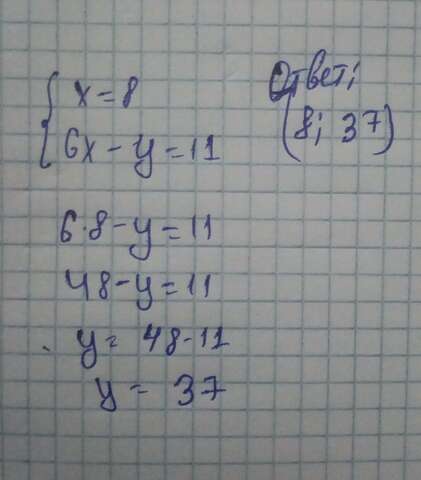 { x = 8
6x - y = 11
Ответ:
(8; 37)
6·8 - y = 11
48 - y = 11
y = 48 - 11
y = 37